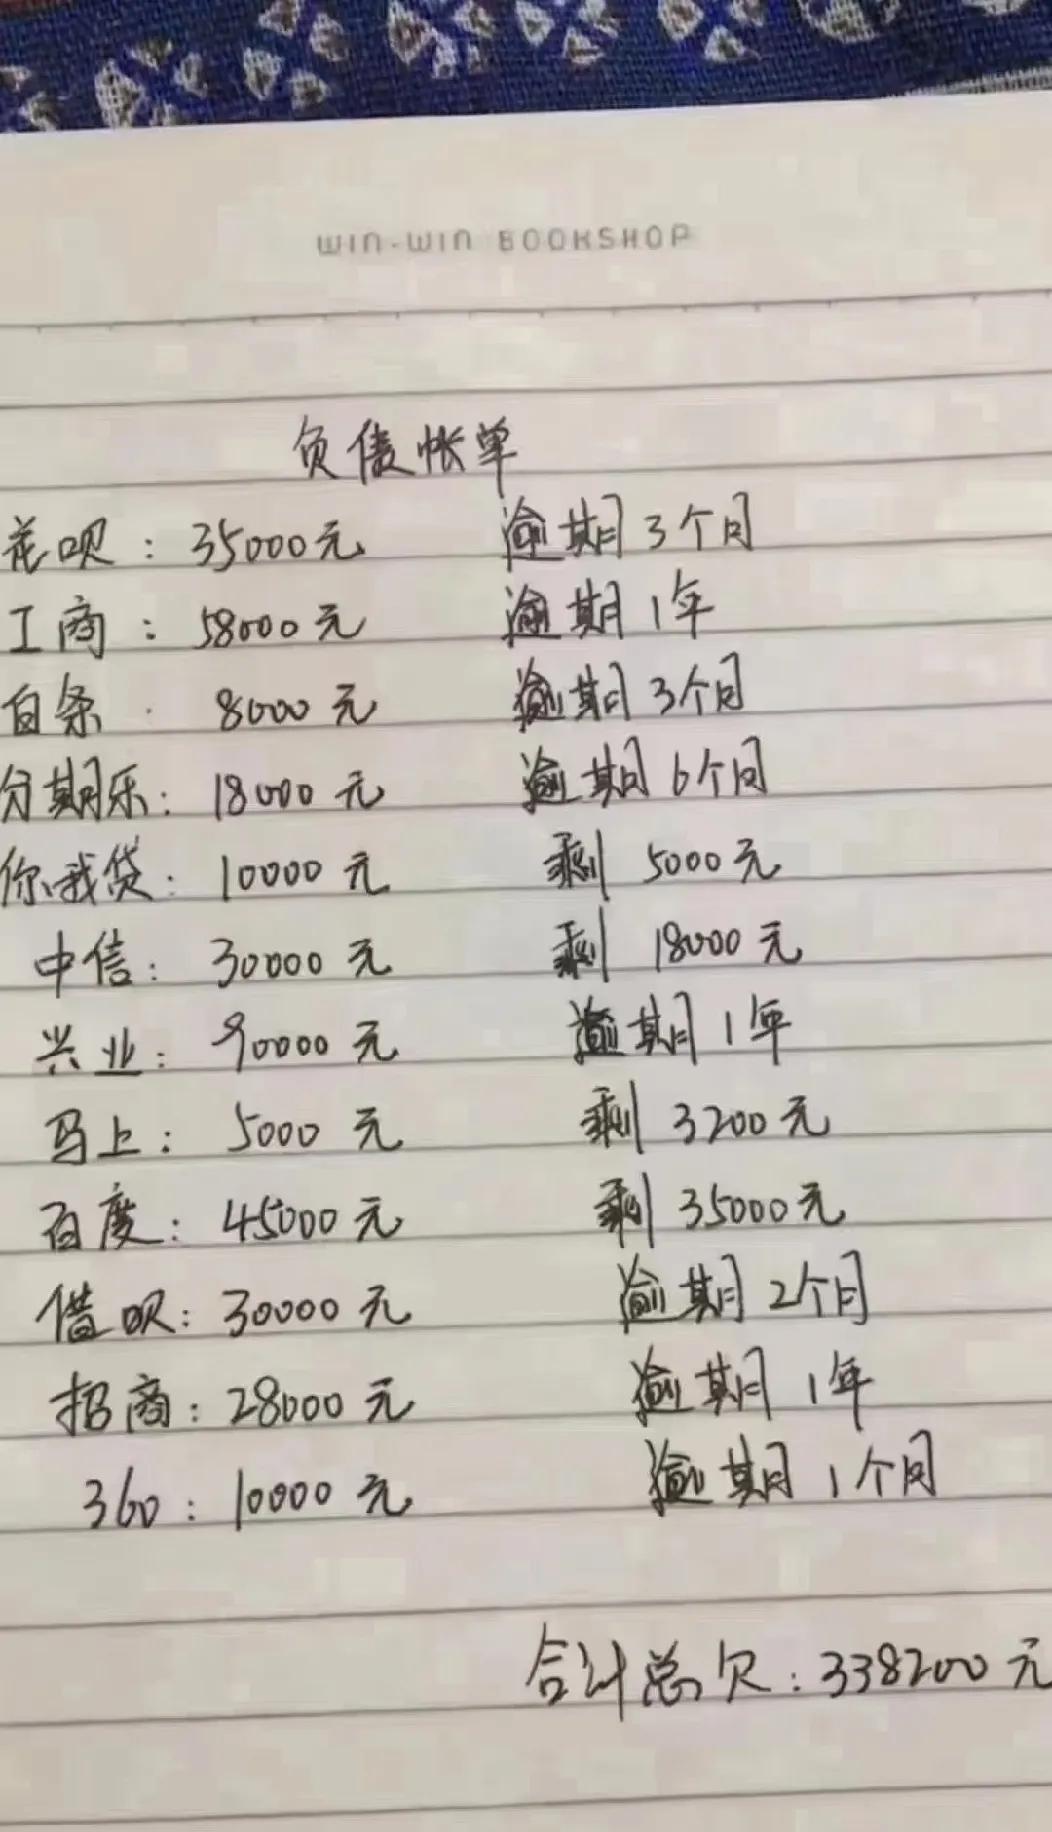 WIN-WIN BOOKSHOP
负债帐单
花呗：35000元 逾期3个月
工商：58000元 逾期1年
白条 8000元 逾期3个月
分期乐：18000元 逾期6个月
你我贷：10000元 剩 5000元
中信：30000元 剩 18000元
兴业：90000元 逾期1年
马上：5000元 剩 3200元
百度：45000元 剩 35000元
借呗：30000元 逾期2个月
招商：28000元 逾期1年
360：10000元 逾期1个月
合计总欠：338200元